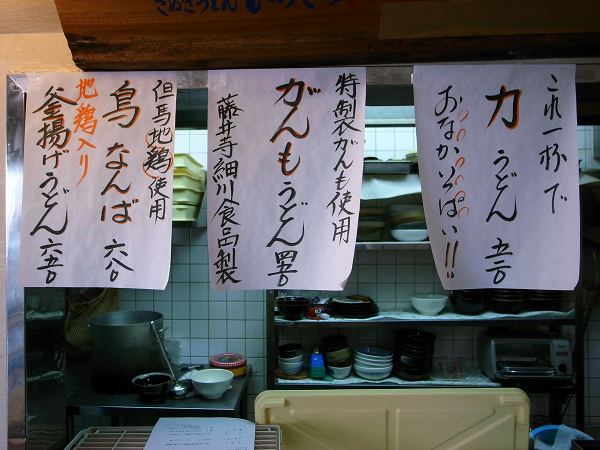 さぬきうどん
これ一杯で
力うどん 五二〇
おなかいっぱい!!
特製がんも使用
がんもうどん 四五〇
藤井寺細川食品製
但馬地鶏使用
鳥なんば 六八〇
地鶏入り
釜揚げうどん 六五〇